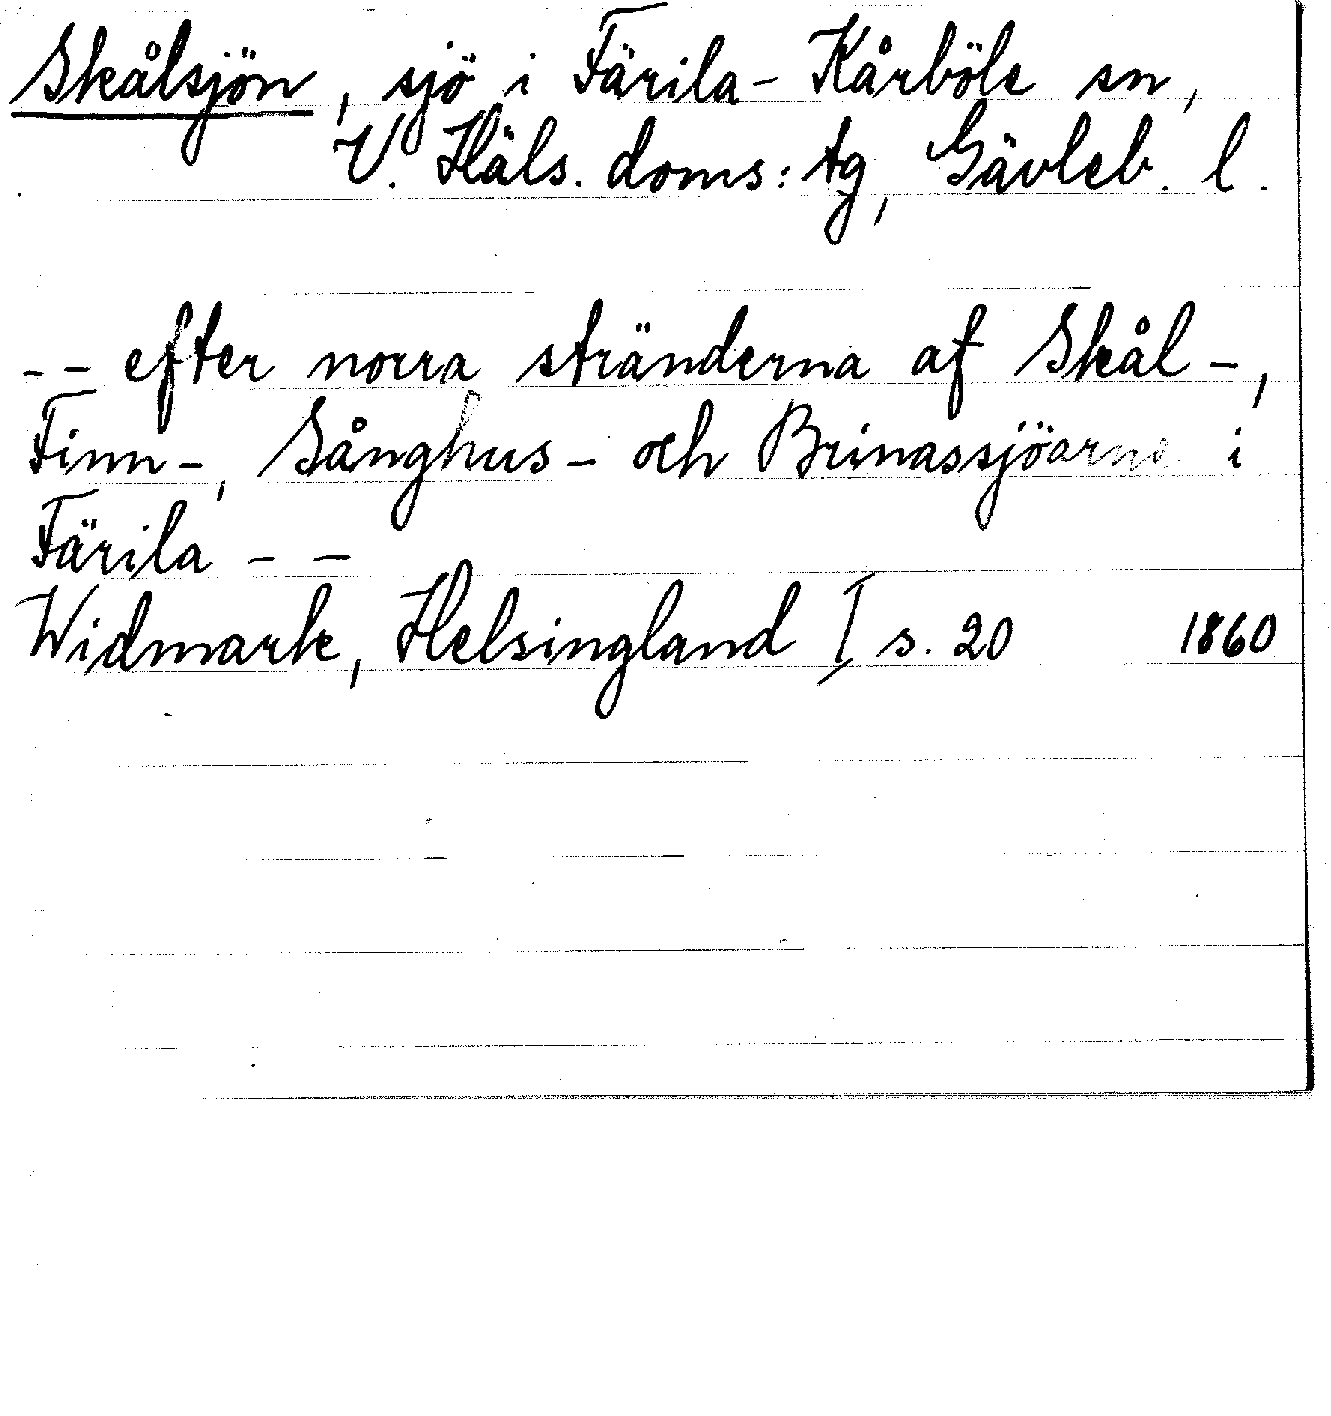 Skålsjön, sjö i Färila-Kårböle sn,
V. Häls. doms:tg, Gävleb. l.
-- efter norra stränderna af Skål-,
Finn-, Sånghus- och Brinassjöarna i
Färila --
Widmark, Helsingland I s. 20 1860